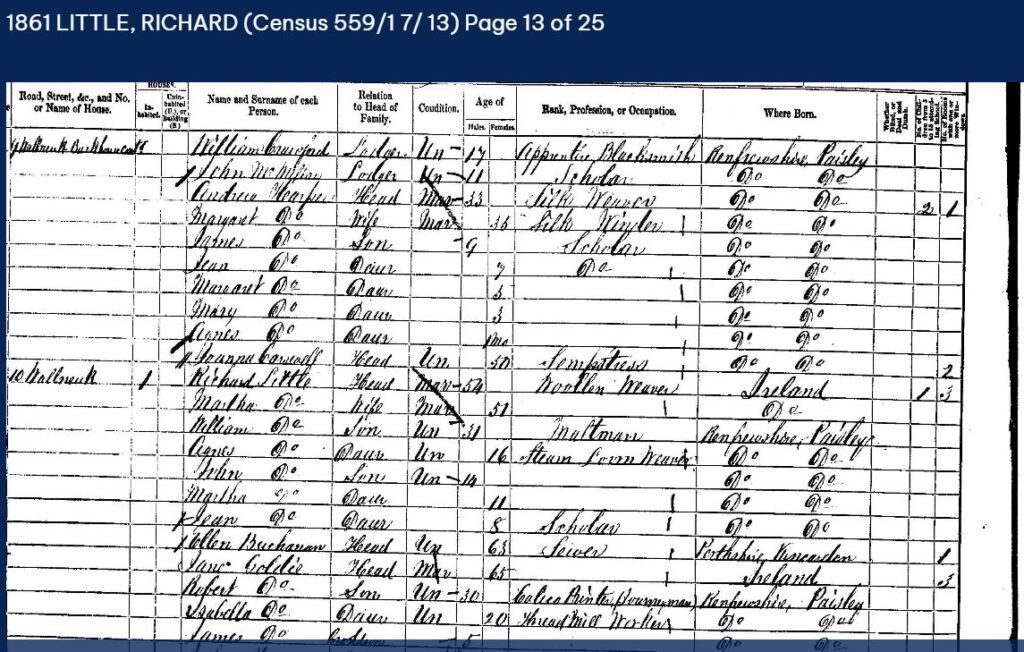 1861 LITTLE, RICHARD (Census 559/1 7/ 13) Page 13 of 25
Road, Street, &c., and No. or Name of House. HOUSES. Inhabited. Uninhabited (U.), or building (B.) Name and Surname of each Person. Relation to Head of Family. Condition. Age of Males. Females. Rank, Profession, or Occupation. Where Born. Whether Blind, or Deaf and Dumb.
9 Wallneuk William Crawford Lodger Un 17 Apprentice Blacksmith Renfrewshire Paisley
John Lodger Un 11 Scholar Do Do
Andrew Harper Head Mar 33 Silk Weaver Do Do 2 1
Margaret Do Wife Mar 35 Silk Winder Do Do
James Do Son 9 Scholar Do Do
Jean Do Daur 7 Do Do Do
Margaret Do Daur 5 Do Do
Mary Do Daur 3 Do Do
Agnes Do Daur Do Do
Joanna Head Un 50 Sempstress Do Do 2
10 Wallneuk 1 Richard Little Head Mar 54 Woollen Weaver Ireland 1 3
Martha Do Wife Mar 51 Do
William Do Son Un 31 Maltman Renfrewshire, Paisley
Agnes Do Daur Un 16 Steam Loom Weaver Do Do
John Do Son Un 14 Do Do
Martha Do Daur 11 Do Do
Jean Do Daur 8 Scholar Do Do
Ellen Buchanan Head Un 63 Sewer Perthshire, Kincarden 1
Jane Goldie Head Mar 65 Ireland 3
Robert Do Son Un 30 Calico Printer (Journeyman) Renfrewshire, Paisley
Isabella Do Daur Un 20 Thread Mill Worker Do Do
James Do 5 Do Do